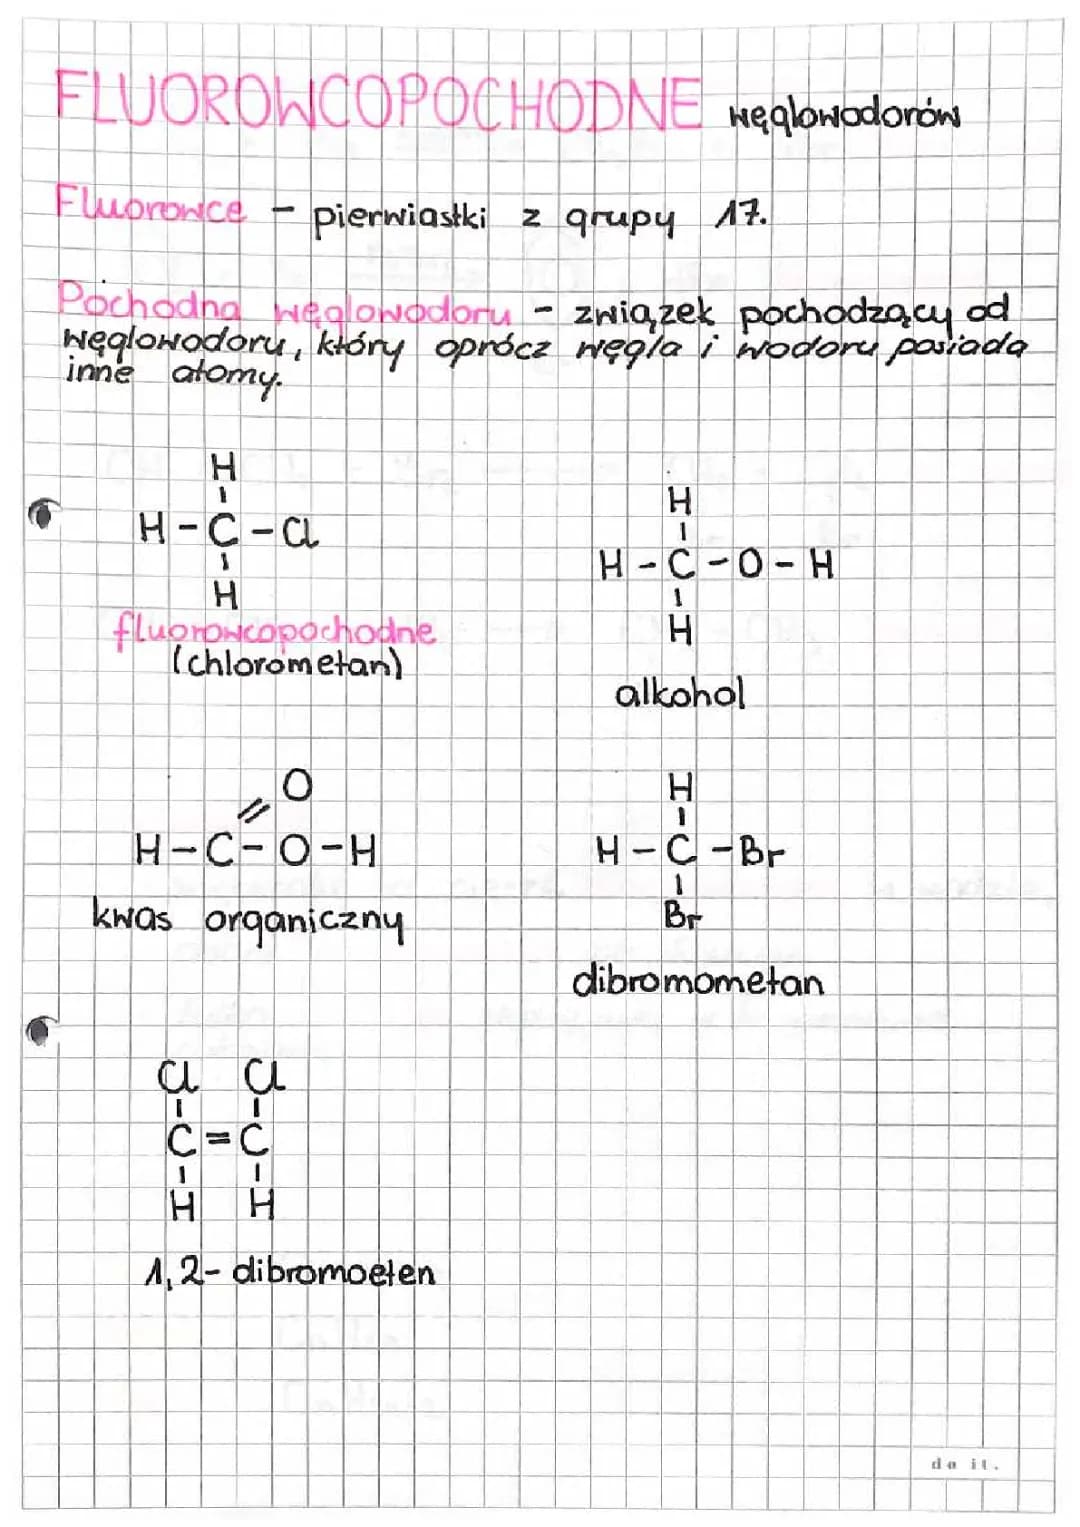 FLUOROWCOPOCHODNE węglowodorów
Fluorowce - pierwiastki z grupy 17.
Pochodna węglowodoru - związek pochodzący od
węglowodoru, który oprócz węgla i wodoru posiada
inne atomy.
H
H-C-Cl
H
fluorowcopochodne
(chlorometan)
H
H-C-O-H
H
alkohol
O
H-C-O-H
kwas organiczny
H
H-C-Br
Br
dibromometan
Cl Cl
C=C
H H
1,2-dibromoeten
do it.